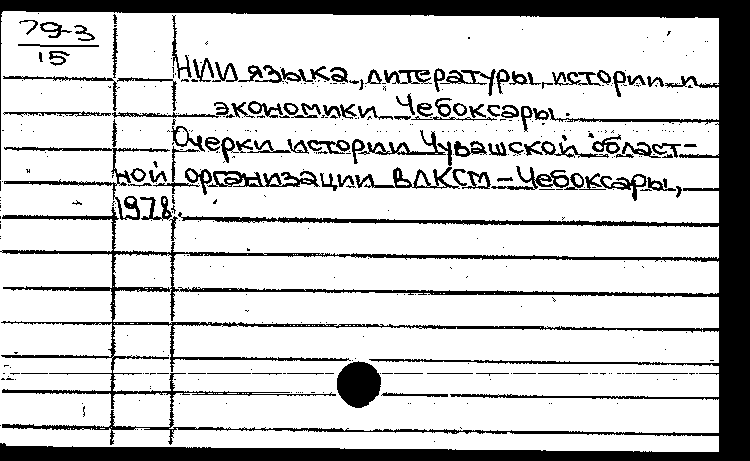 79-3
15
НИИ языка, литературы, истории и
экономики Чебоксары.
Очерки истории Чувашской област-
ной организации ВЛКСМ - Чебоксары,
1978.